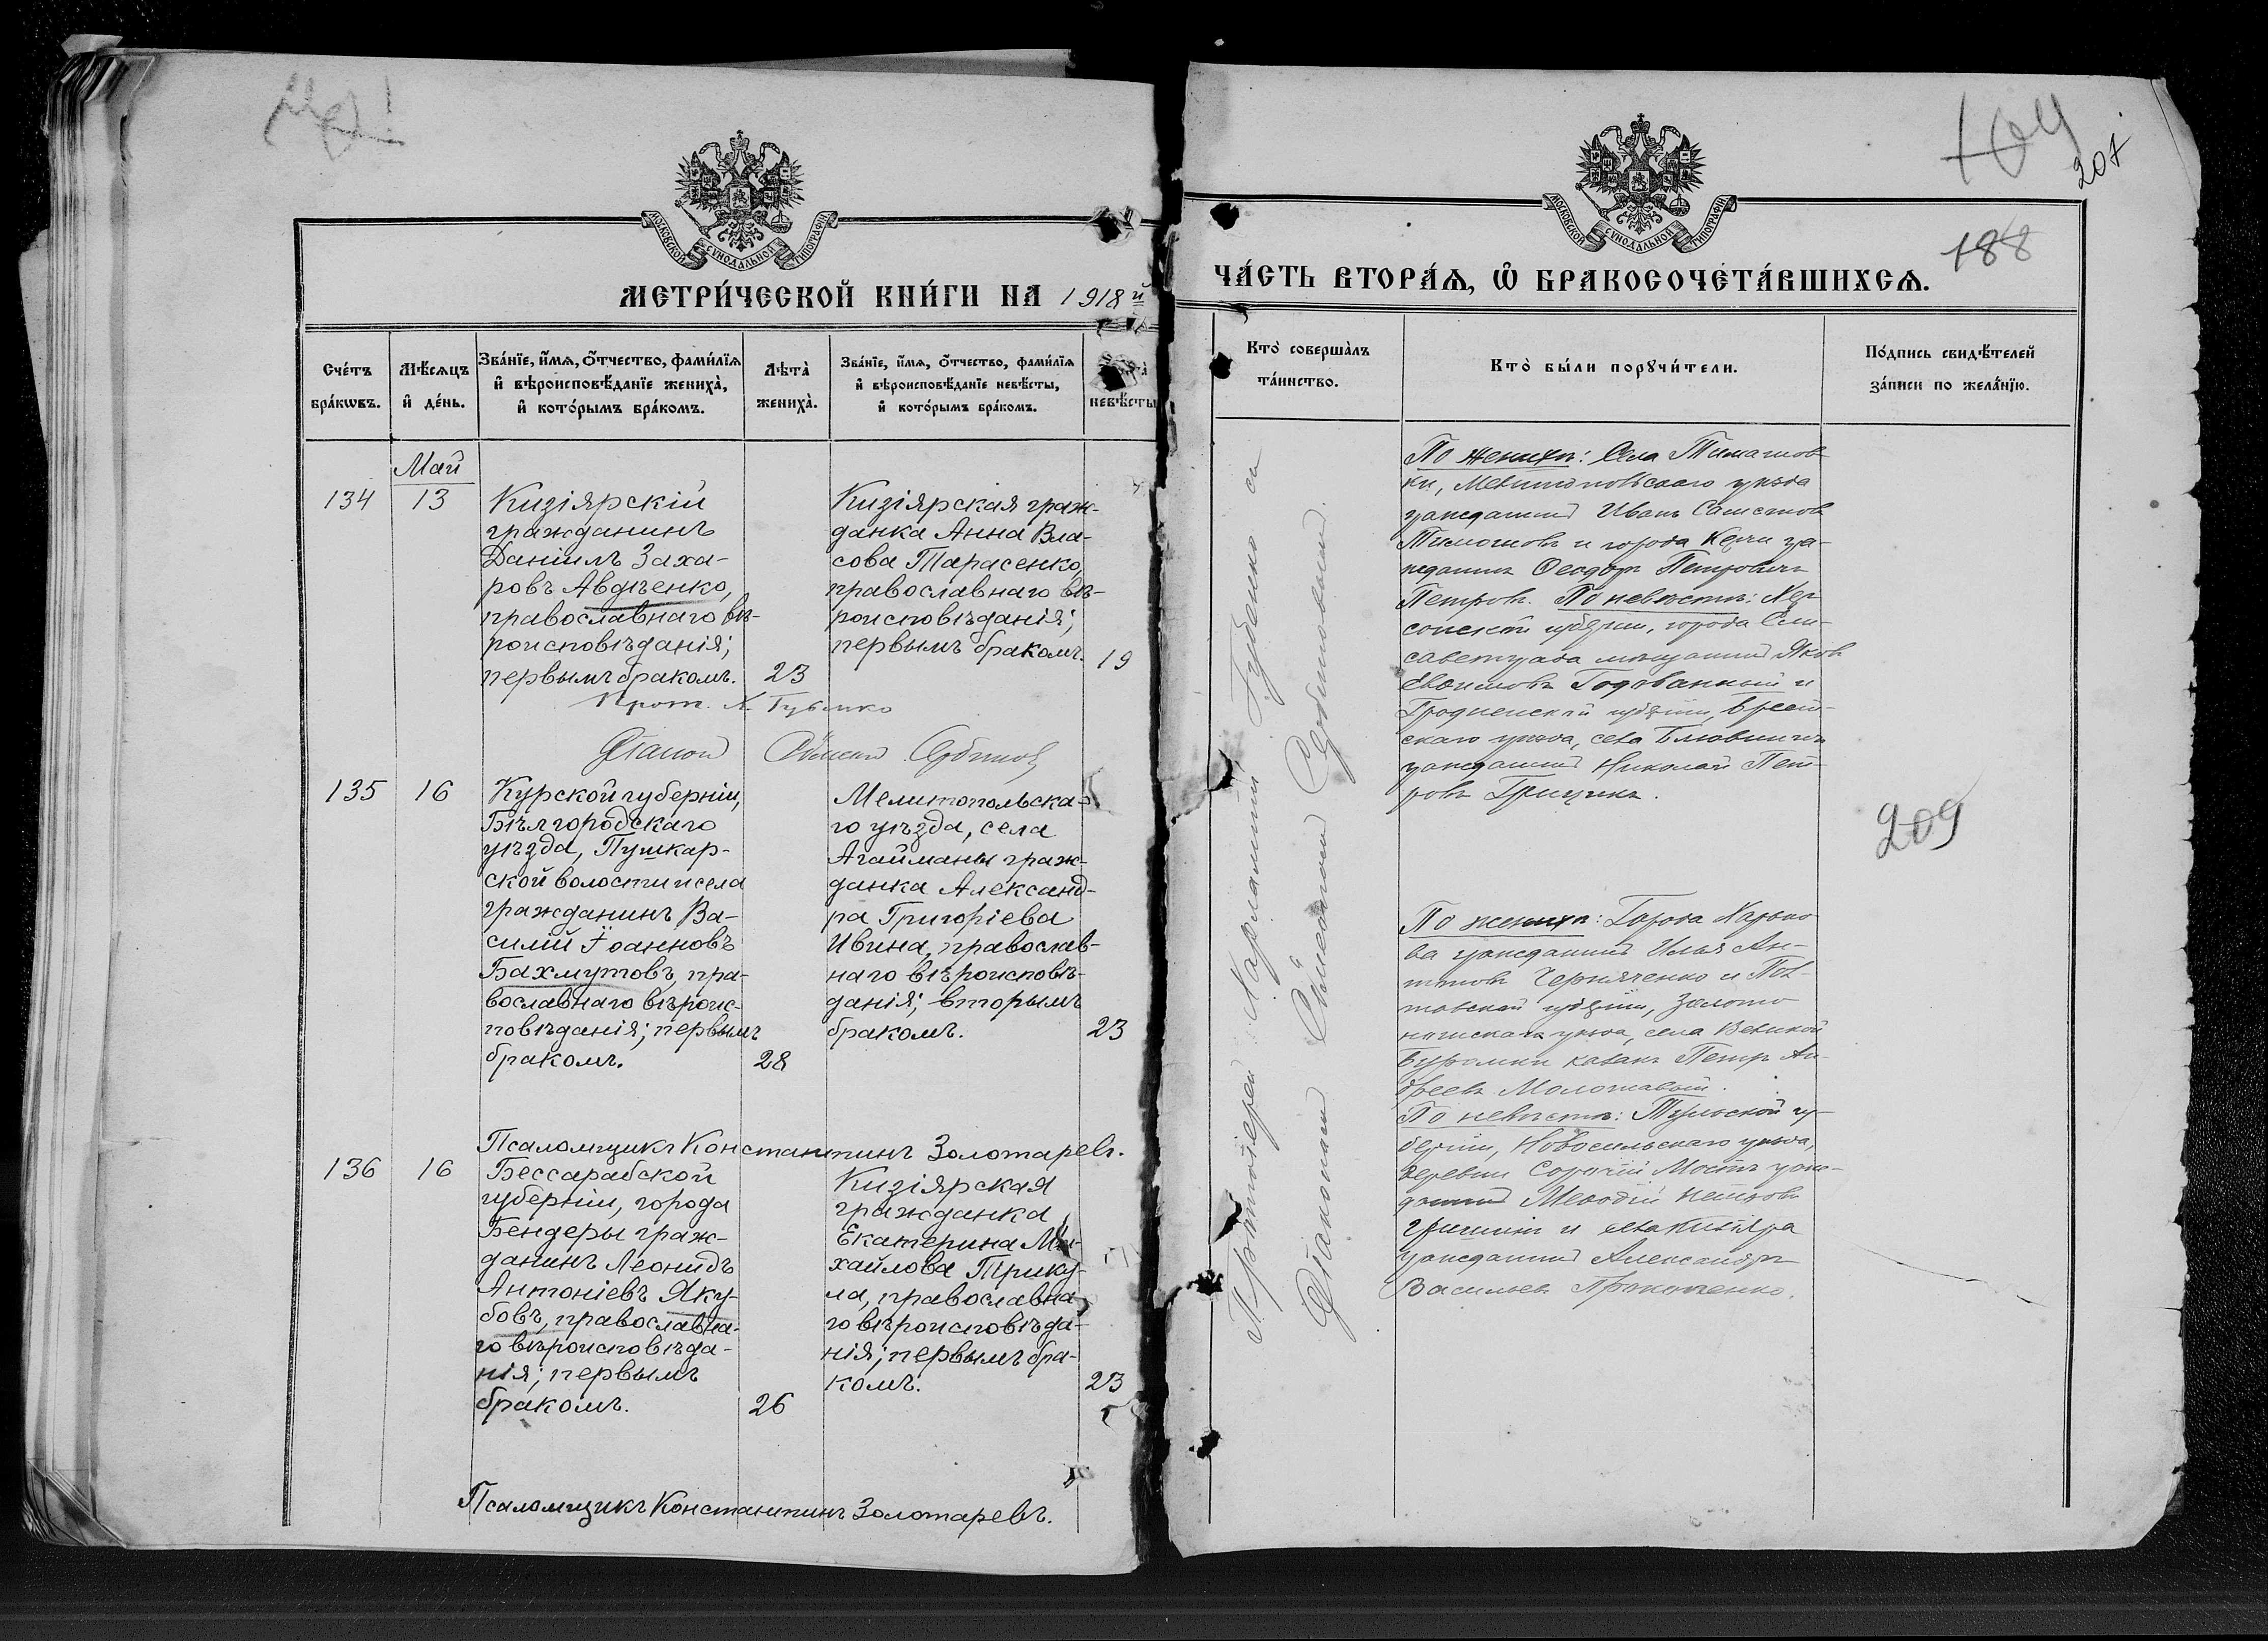 МОСКОВСКОЙ СУНОДАЛЬНОЙ ТИПОГРАФІИ
МЕТРИ́ЧЕСКОЙ КНИ́ГИ НА 1918й
Сче́тъ бра́кѡвъ.
Мѣ́сяцъ и҆ де́нь.
Зва́нїе, и҆́мѧ, ѻ҆́тчество, фами́лїѧ и҆ вѣроисповѣ́данїе жениха̀, и҆ кото́рымъ бра́комъ.
Лѣта̀ жениха̀.
Зва́нїе, и҆́мѧ, ѻ҆́тчество, фами́лїѧ и҆ вѣроисповѣ́данїе невѣ́сты, и҆ кото́рымъ бра́комъ.
невѣ́сты
Май
134
13
Кизіярскій
гражданинъ
Даніилъ Заха-
ровъ Авдѣенко,
православнаго вѣ-
роисповѣданія;
первымъ бракомъ.
23
Кизіярская граж-
данка Анна Вла-
сова Тарасенко,
православнаго вѣ-
роисповѣданія;
первымъ бракомъ.
19
Прот. Х. Губенко
Діаконъ Сербиновъ
135
16
Курской губерніи,
Бѣлгородскаго
уѣзда, Пушкар-
ской волости и села
гражданинъ Ва-
силій Іоанновъ
Бахмутовъ, пра-
вославнаго вѣроис-
повѣданія; первымъ
бракомъ.
28
Мелитопольска-
го уѣзда, села
Агайманы граж-
данка Александ-
ра Григоріева
Ивина, православ-
наго вѣроисповѣ-
данія; вторымъ
бракомъ.
23
Псаломщикъ Константинъ Золотаревъ.
136
16
Бессарабской
губерніи, города
Бендеры граж-
данинъ Леонидъ
Антоніевъ Яку-
бовъ, православна-
го вѣроисповѣда-
нія; первымъ
бракомъ.
26
Кизіярская
гражданка
Екатерина Ми-
хайлова Трику-
ла, православна-
го вѣроисповѣда-
нія; первымъ бра-
комъ.
23
Псаломщикъ Константинъ Золотаревъ.
207
188
МОСКОВСКОЙ СУНОДАЛЬНОЙ ТИПОГРАФІИ
ЧА́СТЬ ВТОРА́Ѧ, Ѽ БРАКОСОЧЕТА́ВШИХСѦ.
Кто̀ соверша́лъ та́инство.
Кто̀ бы́ли порꙋчи́тели.
По́дпись свидѣ́телей за́писи по жела́нїю.
Протоіерей Харлампій Губенко съ
Діакономъ Сербиновымъ.
По женихѣ: Села Тимашов-
ки, Мелитопольскаго уѣзда
гражданинъ Иванъ
и города Керчи гра-
жданинъ Ѳеодоръ Петровичъ
Петровъ. По невѣстѣ: Хер-
сонской губерніи, города Ели-
саветграда мѣщанинъ Яковъ
Годованный и
Гродненской губерніи, Брест-
скаго уѣзда, села
гражданинъ Николай Пет-
ровъ Грицукъ.
209
По женихѣ: Города Харько-
ва гражданинъ Илья Ан-
тоновъ Черняченко и Пол-
тавской губерніи, Золото-
ношскаго уѣзда, села Великой
Буромки казакъ Петръ Ан-
дреевъ Моложавый.
По невѣстѣ: Тульской гу-
берніи, Новосильскаго уѣзда,
деревни Мостъ граж-
данинъ Меѳодій Петровъ
Гришинъ и села Кизіяра
гражданинъ Александръ
Васильевъ Прокопенко.